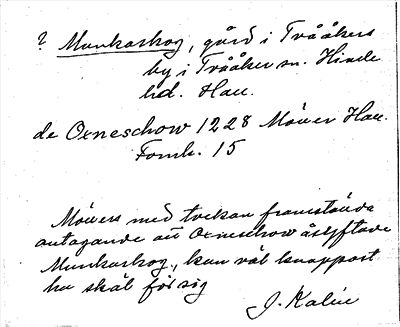 ? Munkaskog, gård i Tvååkers
by i Tvååker sn. Himle
hd. Hall.
de Oxneschow 1228 Möller Hall.
Fornh. 15
Möllers med tvekan framstända
antagande att Oxneschow åsyftade
Munkaskog, kan väl knappast
ha skäl för sig
J. Kalén